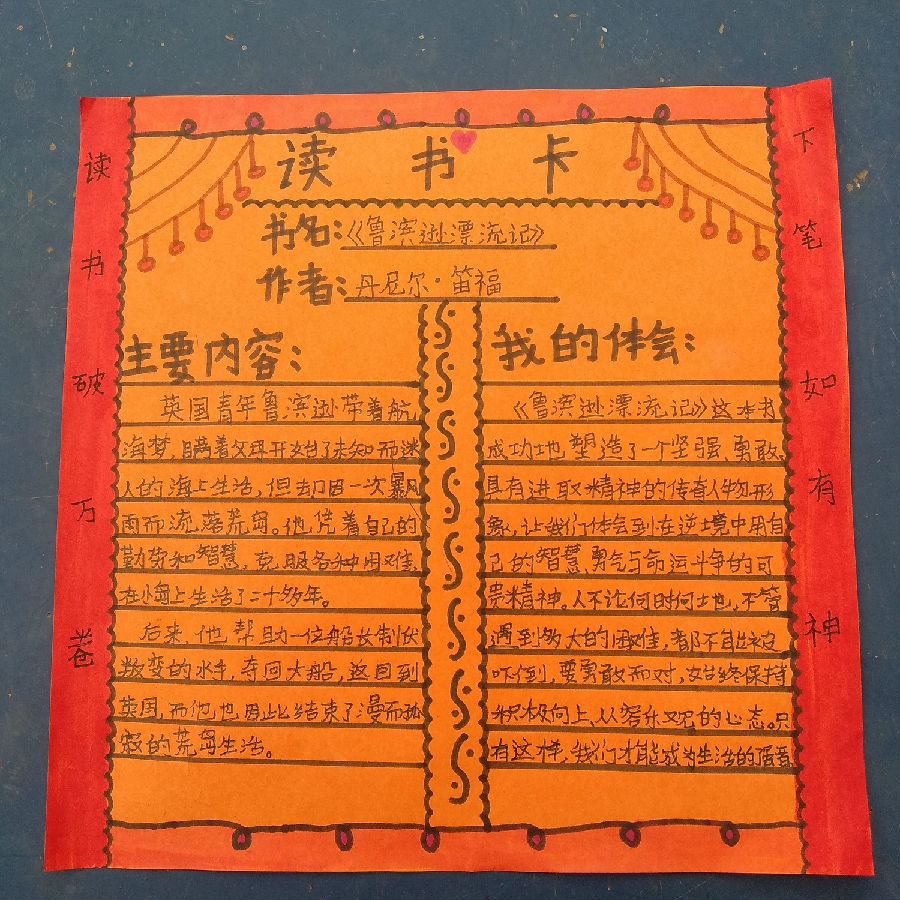 读书卡
书名：《鲁滨逊漂流记》
作者：丹尼尔·笛福
读书破万卷
主要内容：
英国青年鲁滨逊带着航
海梦，瞒着父母开始了未知而迷
人的海上生活，但却因一次暴风
雨而流落荒岛。他凭着自己的
勤劳和智慧，克服各种困难，
在小岛上生活了二十多年。
后来，他帮助一位船长制伏
叛变的水手，夺回大船，返回到
英国，而他也因此结束了漫而孤
寂的荒岛生活。
我的体会：
《鲁滨逊漂流记》这本书
成功地塑造了一个坚强、勇敢、
具有进取精神的传奇人物形
象，让我们体会到在逆境中用自
己的智慧、勇气与命运斗争的可
贵精神。人不论何时何地，不管
遇到多大的困难，都不能被
吓倒，要勇敢面对，始终保持
积极向上、从容乐观的心态。只
有这样，我们才能成为生活的强者
下笔如有神